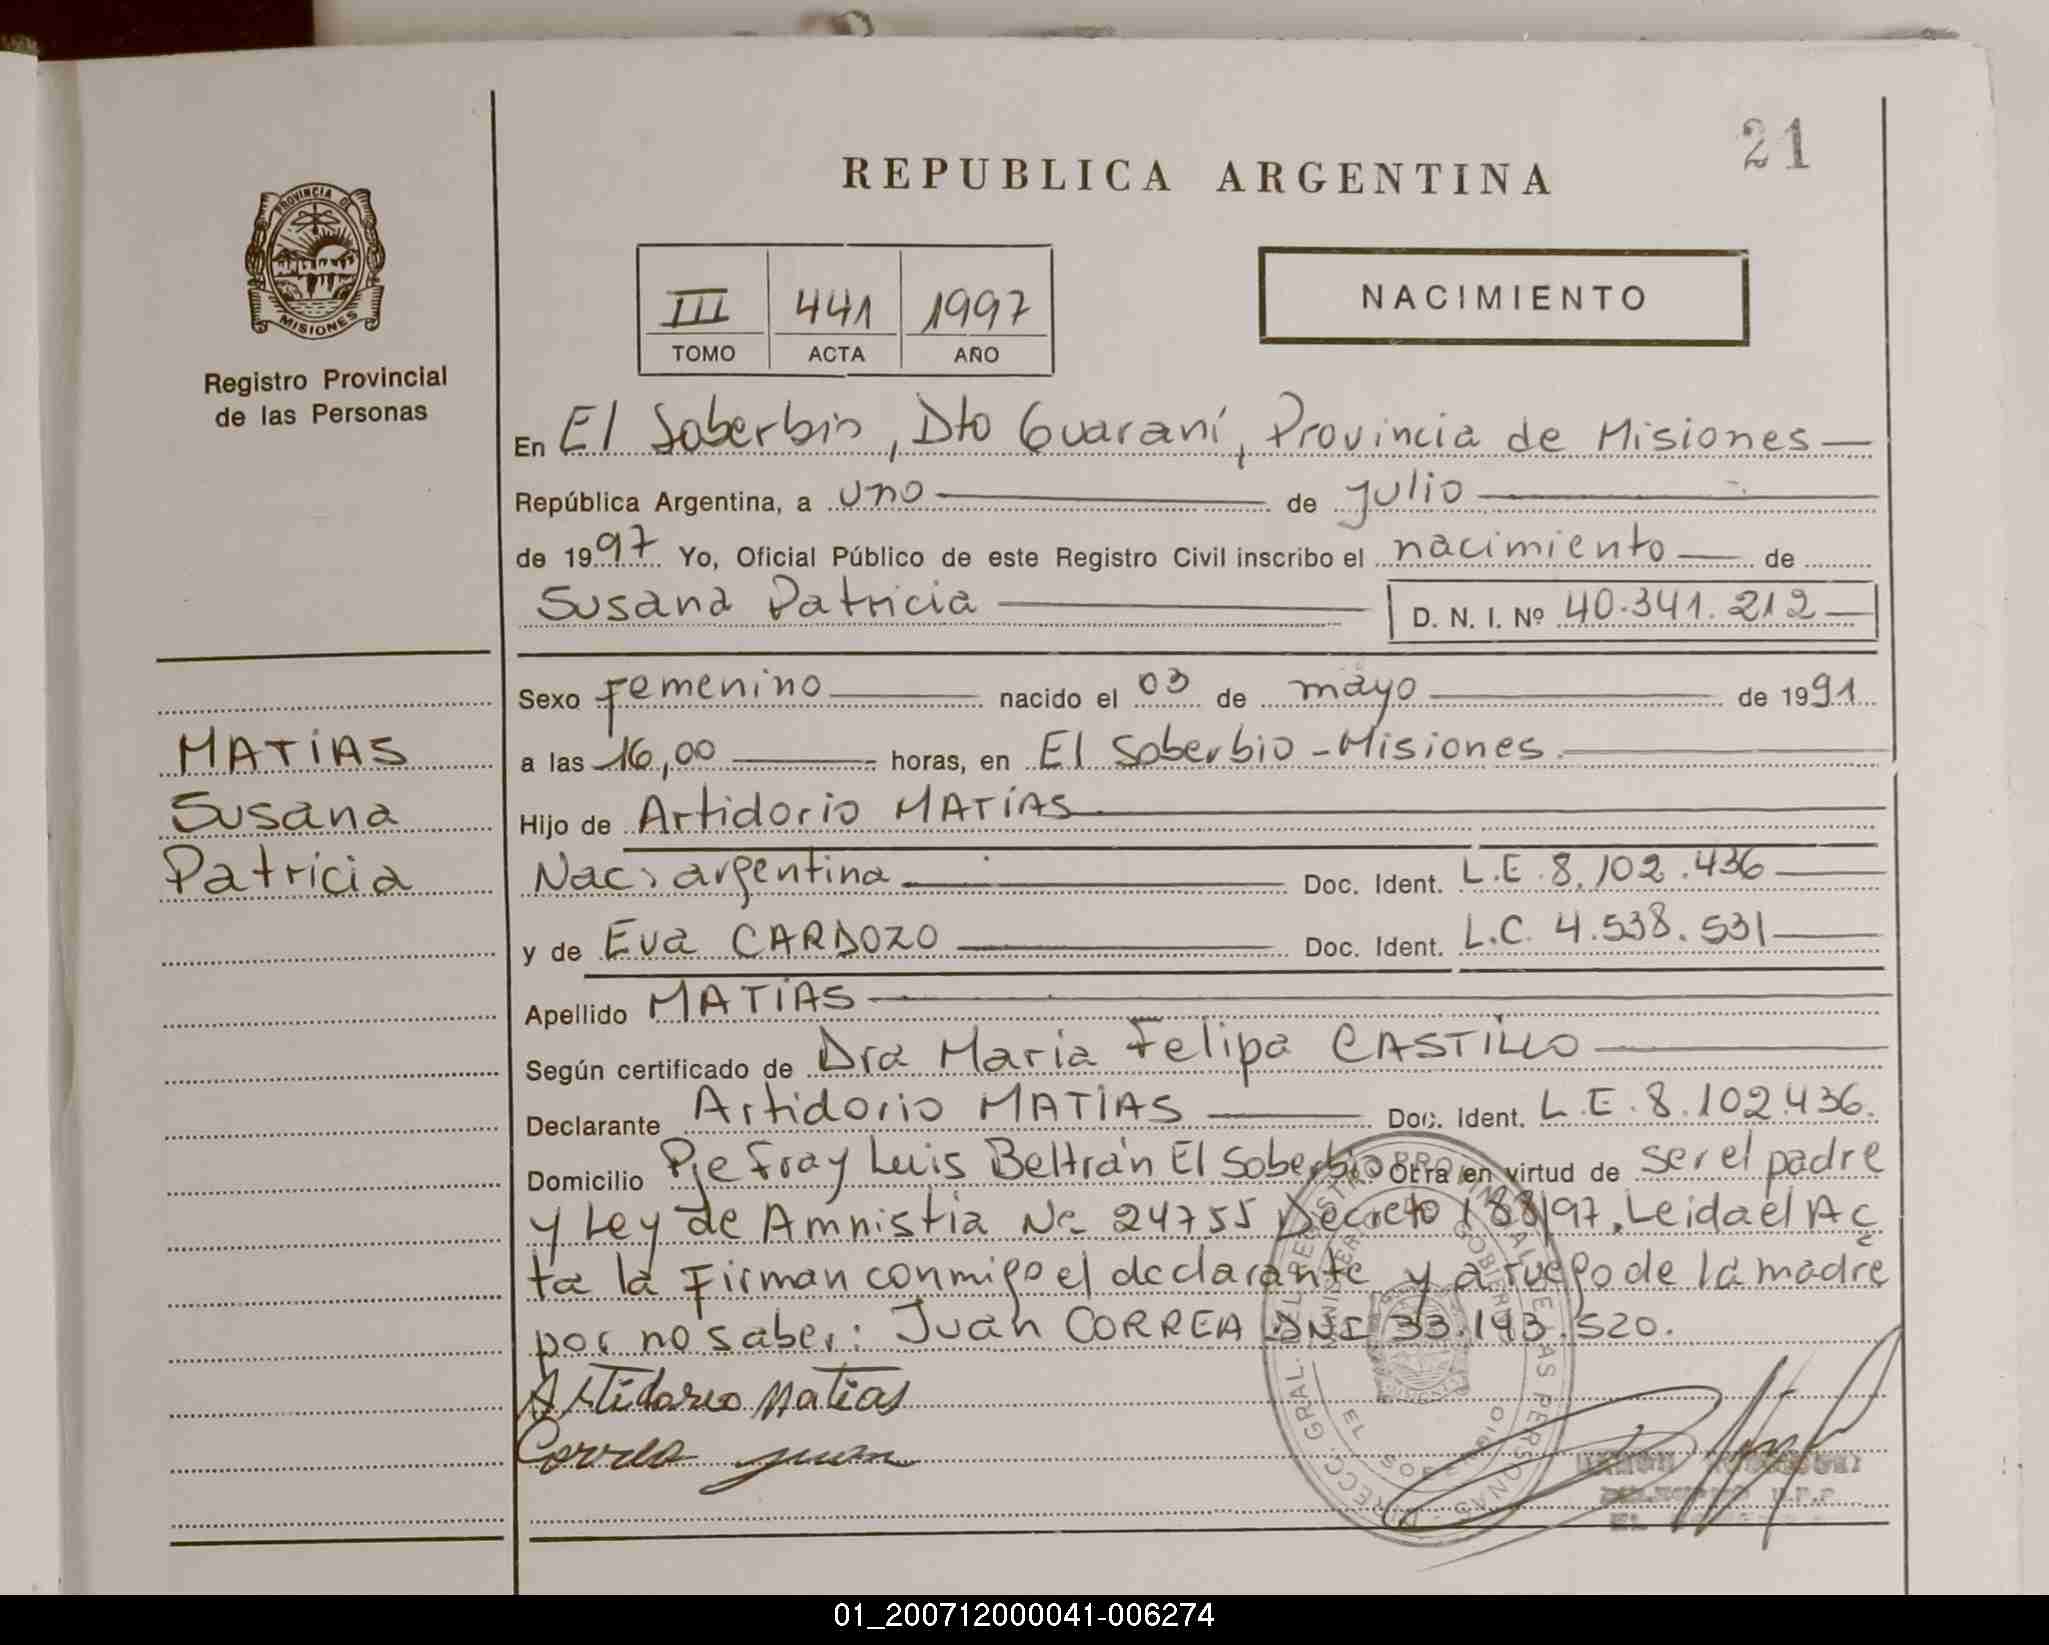 21
REPUBLICA ARGENTINA
PROVINCIA DE
MISIONES
Registro Provincial
de las Personas
III 441 1997
TOMO ACTA AÑO
NACIMIENTO
En El Soberbio, Dto Guaraní, Provincia de Misiones
República Argentina, a uno de julio
de 1997 Yo, Oficial Público de este Registro Civil inscribo el nacimiento de
Susana Patricia D. N. I. Nº 40.341.212
Sexo femenino nacido el 03 de mayo de 1991
MATÍAS
Susana
Patricia
a las 16,00 horas, en El Soberbio - Misiones
Hijo de Artidorio MATÍAS
Nac. argentina Doc. Ident. L.E. 8.102.436
y de Eva CARDOZO Doc. Ident. L.C. 4.538.531
Apellido MATÍAS
Según certificado de Dra Maria Felipa CASTILLO
Declarante Artidorio MATÍAS Doc. Ident. L.E. 8.102.436.
Domicilio Pje Fray Luis Beltrán El Soberbio Otra en virtud de ser el padre
y Ley de Amnistia No 24755 Decreto 188/97. Leida el Ac
ta la firman conmigo el declarante y a ruego de la madre
por no saber: Juan CORREA DNI 33.193.520.
Artidorio Matias
Correa Juan
EL SOBERBIO
01_200712000041-006274